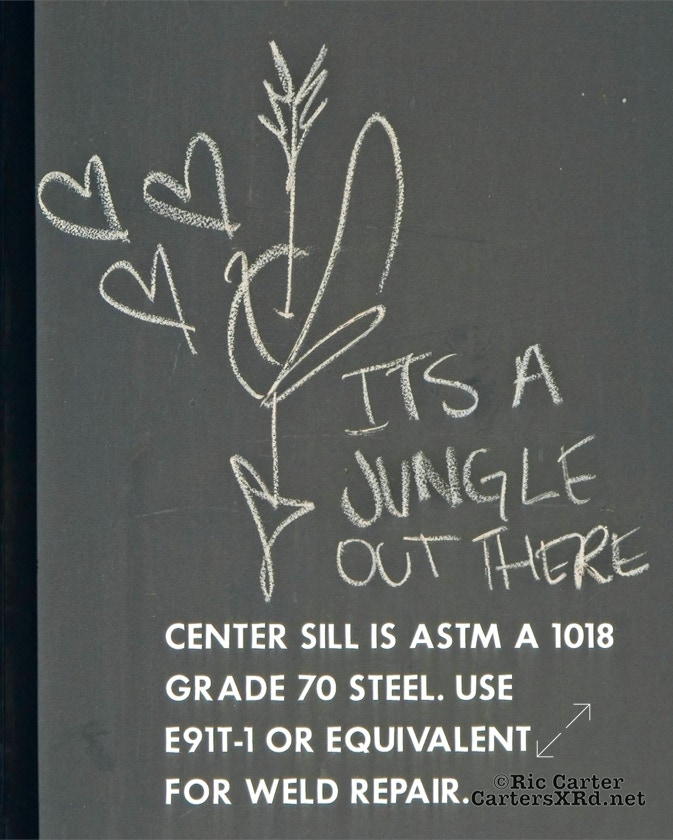 ITS A
JUNGLE
OUT THERE
CENTER SILL IS ASTM A 1018
GRADE 70 STEEL. USE
E91T-1 OR EQUIVALENT
FOR WELD REPAIR.
©Ric Carter
CartersXRd.net